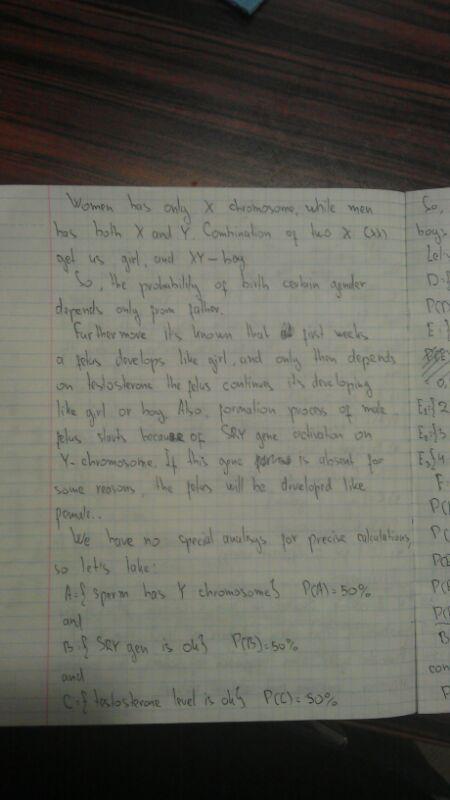 Women has only X chromosome, while men
has both X and Y. Combination of two X (XX)
get us girl, and XY - boy
So, the probability of birth certain gender
depends only from father.
Furthermore it's known that first weeks
a fetus develops like girl, and only then depends
on testosterone the fetus continues its developing
like girl or boy. Also, formation process of male
fetus starts because of SRY gene activation on
Y-chromosome. If this gene is absent for
some reasons, the fetus will be developed like
female..
We have no special analisys for precise calculations,
so let's take:
A={ sperm has Y chromosome} P(A)=50%
and
B={ SRY gen is ok} P(B)=50%
and
C={ testosterone level is ok} P(C)=50%
So,
boys
Let
D={
P(D
E={
0,
E₁={2
E₂={3
E₃={4
F
P(
P(
P(
P(
P(
B
con
P